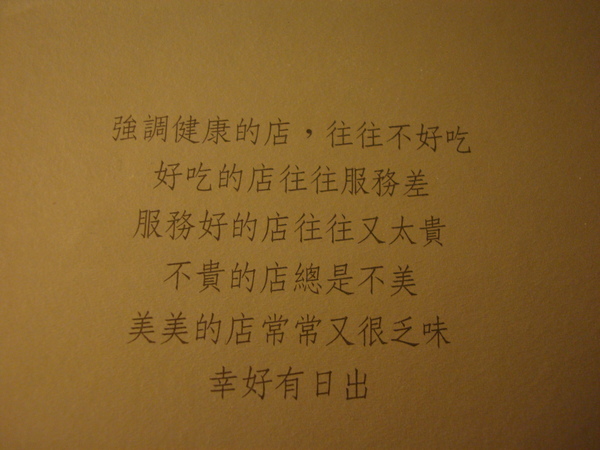 強調健康的店，往往不好吃
好吃的店往往服務差
服務好的店往往又太貴
不貴的店總是不美
美美的店常常又很乏味
幸好有日出